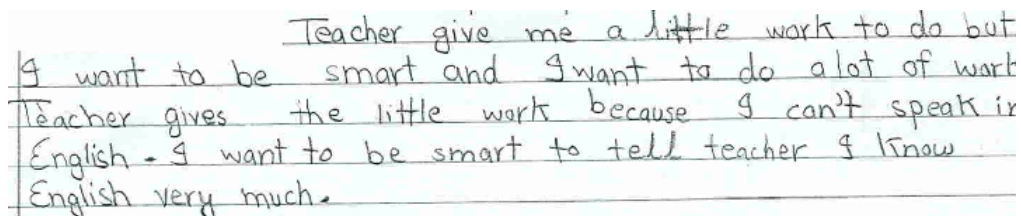 Teacher give me a little work to do but
I want to be smart and I want to do alot of work
Teacher gives the little work because I can't speak in
English. I want to be smart to tell teacher I know
English very much.